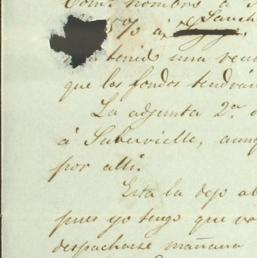 Com. nombró a
5% a
tenido una
que los fondos tendrán
La adjunta 2ª
á Subervielle, aunq
por alli.
Esta la dejo
pues yo tengo que
despacharse mañana